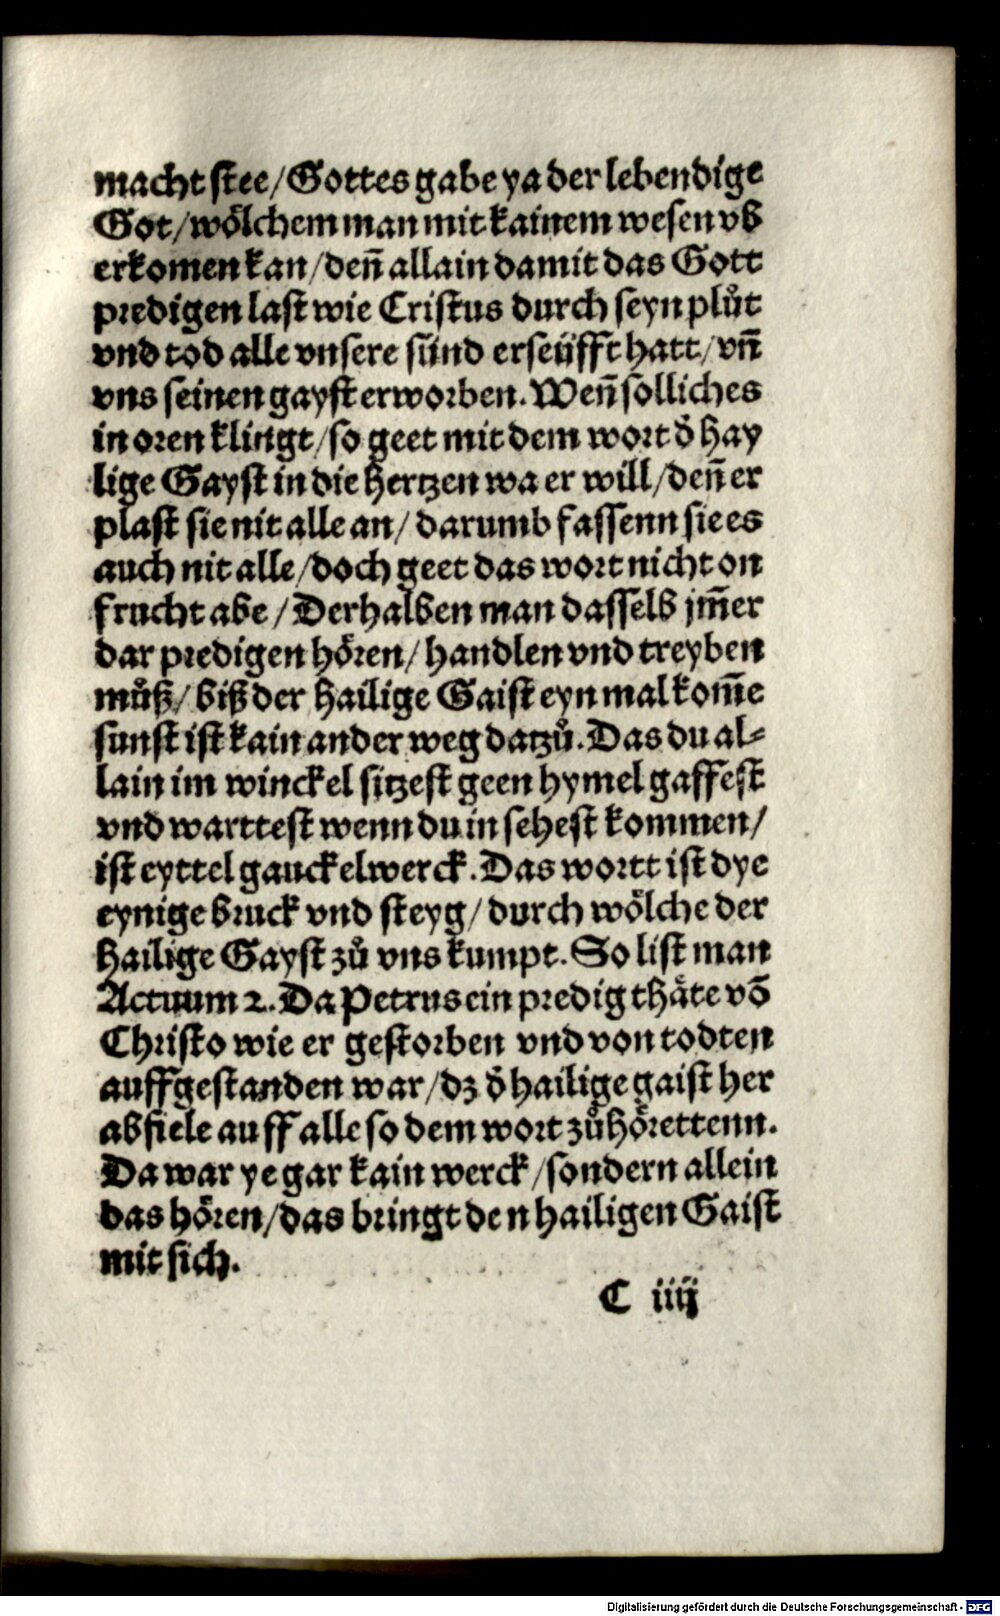 macht stee/Gottes gabe ya der lebendige
Got/wölchem man mit kainem wesen vb
erkomen kan/deñ allain damit das Gott
predigen last wie Cristus durch seyn plůt
vnd tod alle vnsere sünd erseüfft hatt/vñ
vns seinen gayst erworben. Weñ solliches
in oren klingt/so geet mit dem wort d̕ hay
lige Gayst in die hertzen wa er will/deñ er
plast sie nit alle an/darumb fassenn sie es
auch nit alle/doch geet das wort nicht on
frucht abe/Derhalben man dasselb jm̃er
dar predigen hören/handlen vnd treyben
můß/biß der hailige Gaist eyn mal kom̃e
sunst ist kain ander weg datzů. Das du al⸗
lain im winckel sitzest geen hymel gaffest
vnd warttest wenn du in sehest kommen/
ist eyttel gauckelwerck. Das wortt ist dye
eynige bruck vnd steyg/durch wölche der
hailige Gayst zů vns kumpt. So list man
Actuum 2. Da Petrus ein predig thäte võ
Christo wie er gestorben vnd von todten
auffgestanden war/dz d̕ hailige gaist her
abfiele auff alle so dem wort zůhörettenn.
Da war ye gar kain werck/sondern allein
das hören/das bringt den hailigen Gaist
mit sich.
C iiij
Digitalisierung gefördert durch die Deutsche Forschungsgemeinschaft - DFG